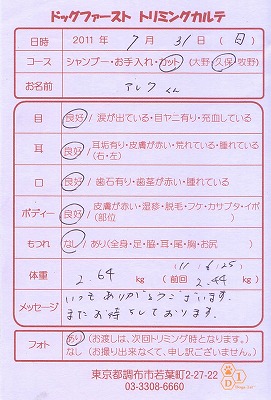 ドッグファースト トリミングカルテ
日時 2011年 7月 31(日)
コース シャンプー・お手入れ・カット(大野・久保・牧野)
お名前 アレフくん
目 良好/涙が出ている・目ヤニ有り・充血している
耳 良好/耳垢有り・皮膚が赤い・荒れている・腫れている
(右・左)
口 良好/歯石有り・歯茎が赤い・腫れている
ボディー 良好/皮膚が赤い・湿疹・脱毛・フケ・カサブタ・イボ
(部位 )
もつれ なし/あり(全身・足・脇・耳・尾・胸・お尻 )
(11.6.25)
体重 2.64 kg (前回 2.44 kg)
メッセージ いつもありがとうございます。
またお待ちしております。
フォト あり(お渡しは、次回トリミング時となります。)
なし(お撮り出来なくて、申し訳ございません。)
東京都調布市若葉町2-27-22
03-3308-6660